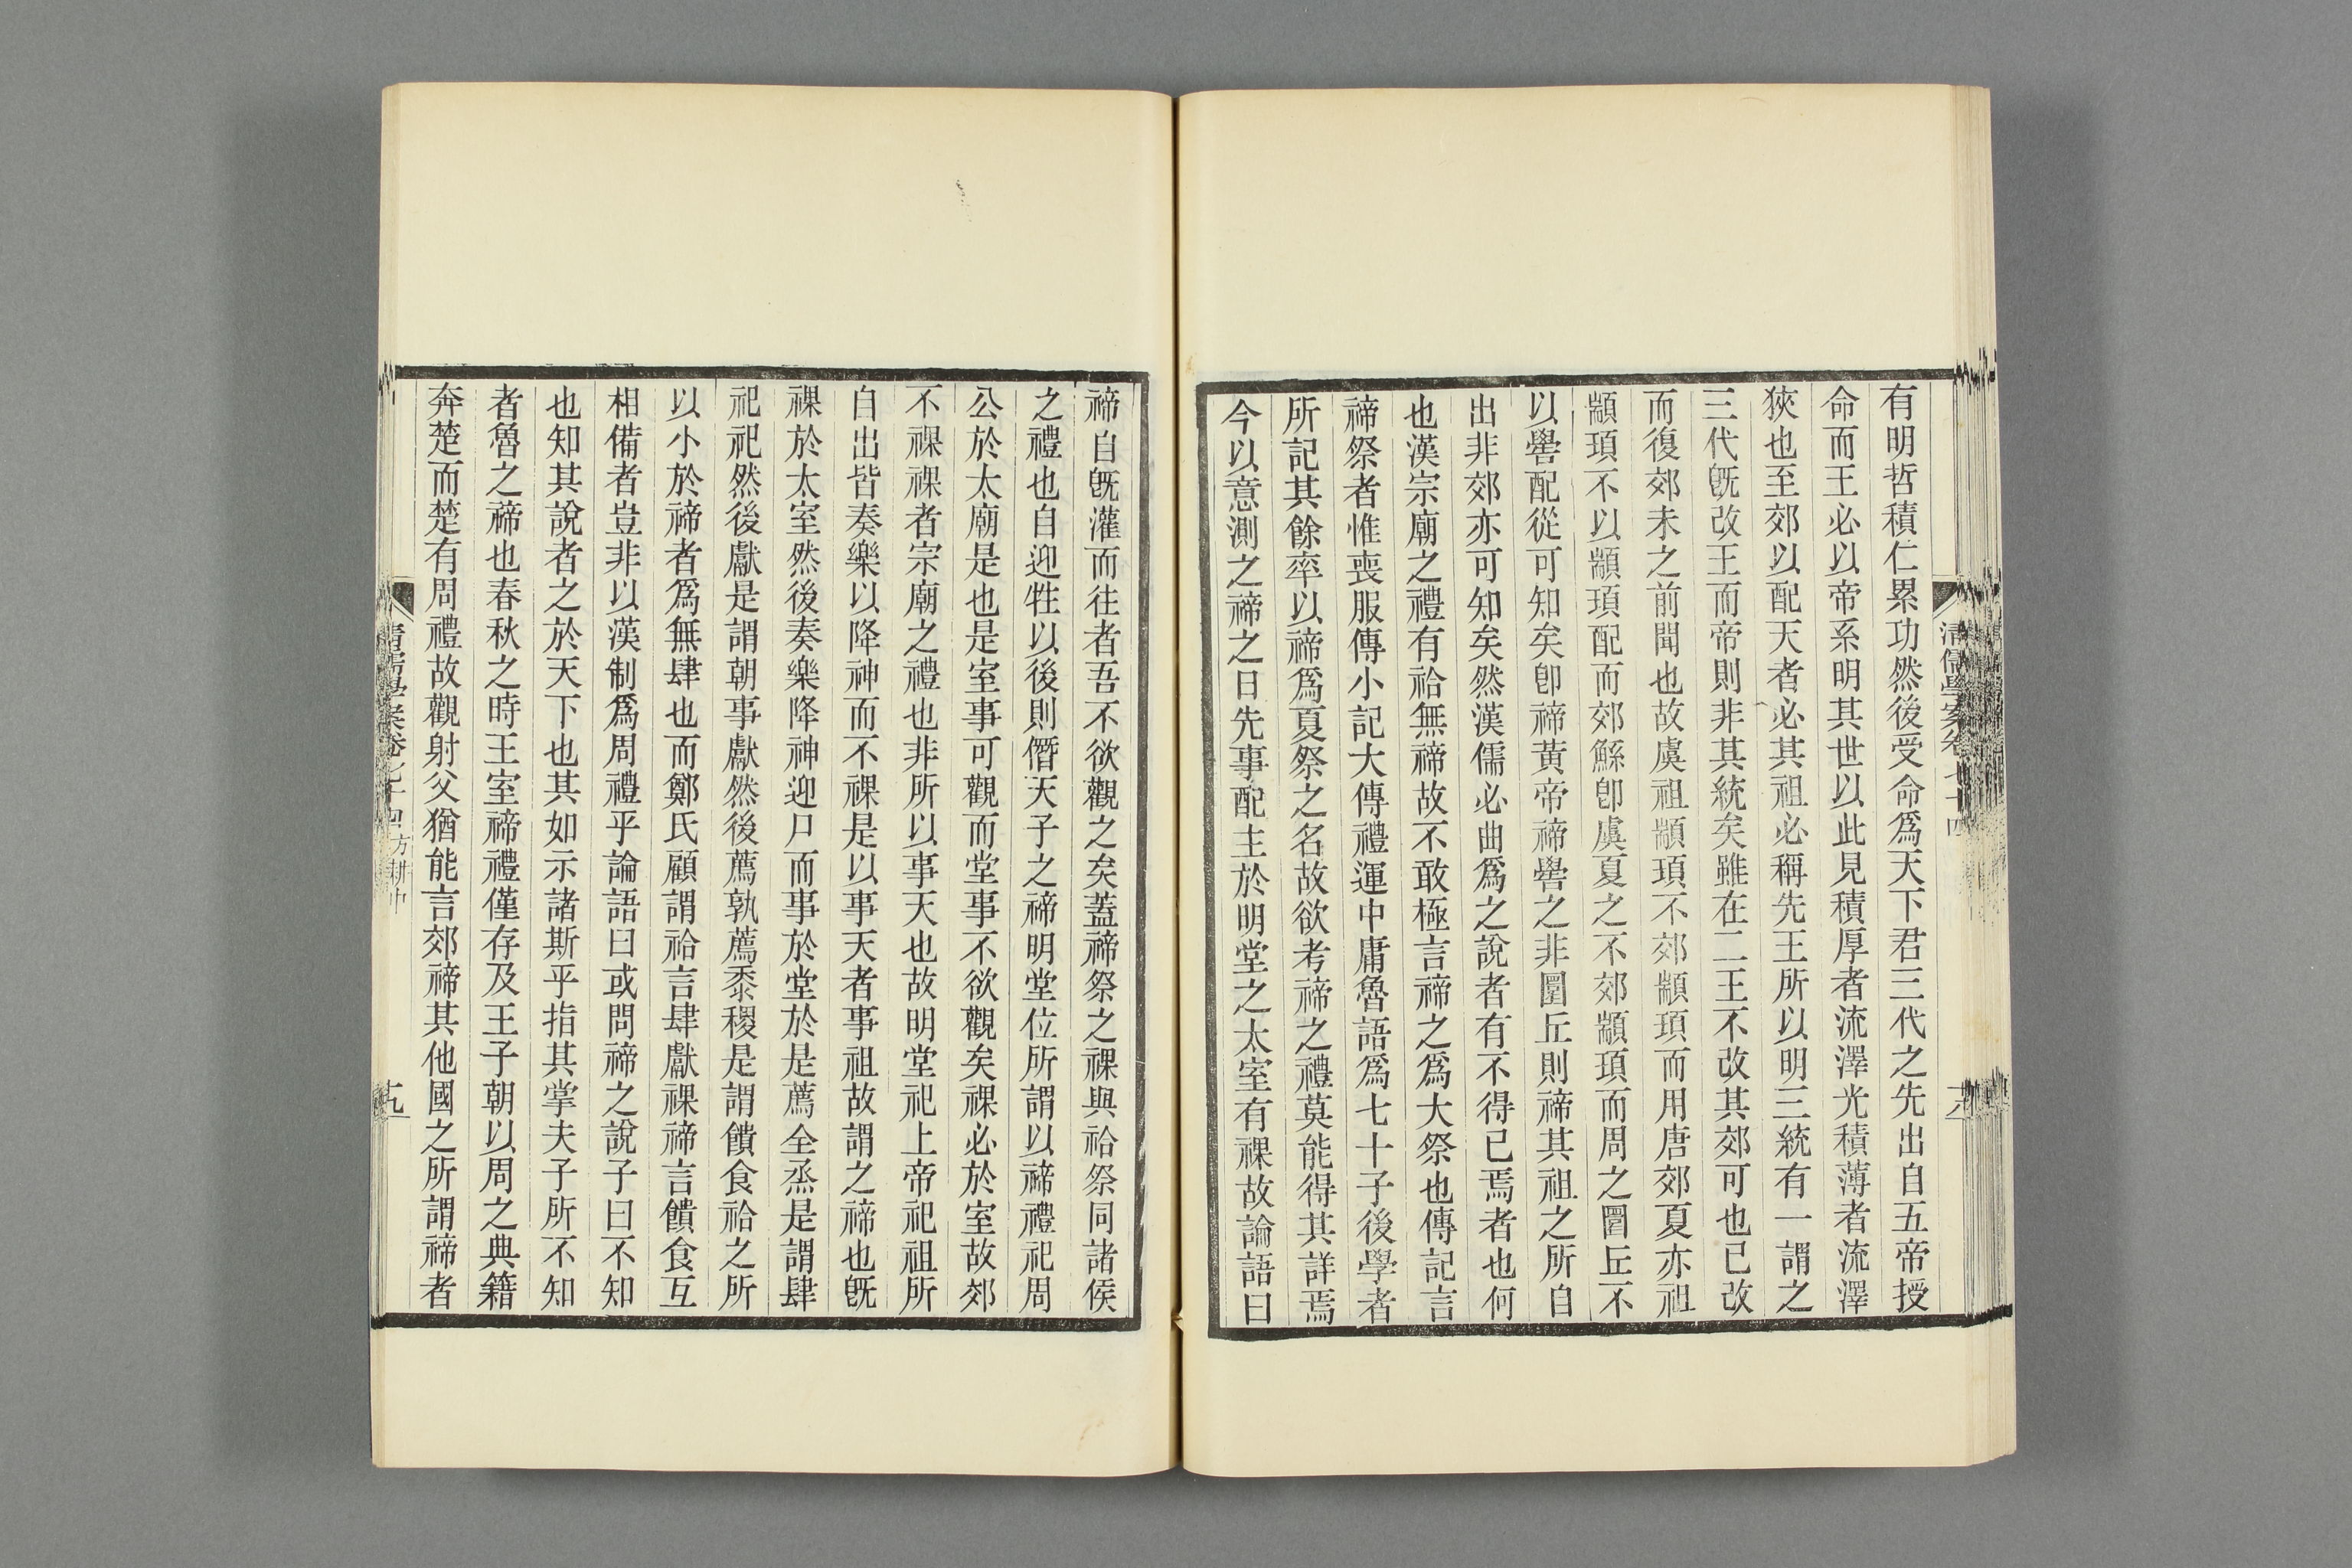 有明哲積仁累功然後受命爲天下君三代之先出自五帝授
命而王必以帝系明其世以此見積厚者流澤光積薄者流澤
狹也至郊以配天者必其祖必稱先王所以明三統有一謂之
三代旣改王而帝則非其統矣雖在二王不改其郊可也已改
而復郊未之前聞也故虞祖顓頊不郊顓頊而用唐郊夏亦祖
顓頊不以顓頊配而郊鯀卽虞夏之不郊顓頊而周之圜丘不
以嚳配從可知矣卽禘黃帝禘嚳之非圜丘則禘其祖之所自
出非郊亦可知矣然漢儒必曲爲之說者有不得已焉者也何
也漢宗廟之禮有祫無禘故不敢極言禘之爲大祭也傳記言
禘祭者惟喪服傳小記大傳禮運中庸魯語爲七十子後學者
所記其餘率以禘爲夏祭之名故欲考禘之禮莫能得其詳焉
今以意測之禘之日先事配主於明堂之太室有祼故論語曰
清儒學案卷七十四
十八
禘自旣灌而往者吾不欲觀之矣蓋禘祭之祼與祫祭同諸侯
之禮也自迎牲以後則僭天子之禘明堂位所謂以禘禮祀周
公於太廟是也是室事可觀而堂事不欲觀矣祼必於室故郊
不祼祼者宗廟之禮也非所以事天也故明堂祀上帝祀祖所
自出皆奏樂以降神而不祼是以事天者事祖故謂之禘也旣
祼於太室然後奏樂降神迎尸而事於堂於是薦全烝是謂肆
祀祀然後獻是謂朝事獻然後薦孰薦黍稷是謂饋食祫之所
以小於禘者爲無肆也而鄭氏顧謂祫言肆獻祼禘言饋食互
相備者豈非以漢制爲周禮乎論語曰或問禘之說子曰不知
也知其說者之於天下也其如示諸斯乎指其掌夫子所不知
者魯之禘也春秋之時王室禘禮僅存及王子朝以周之典籍
奔楚而楚有周禮故觀射父猶能言郊禘其他國之所謂禘者
清儒學案卷七十四 方耕中
十九